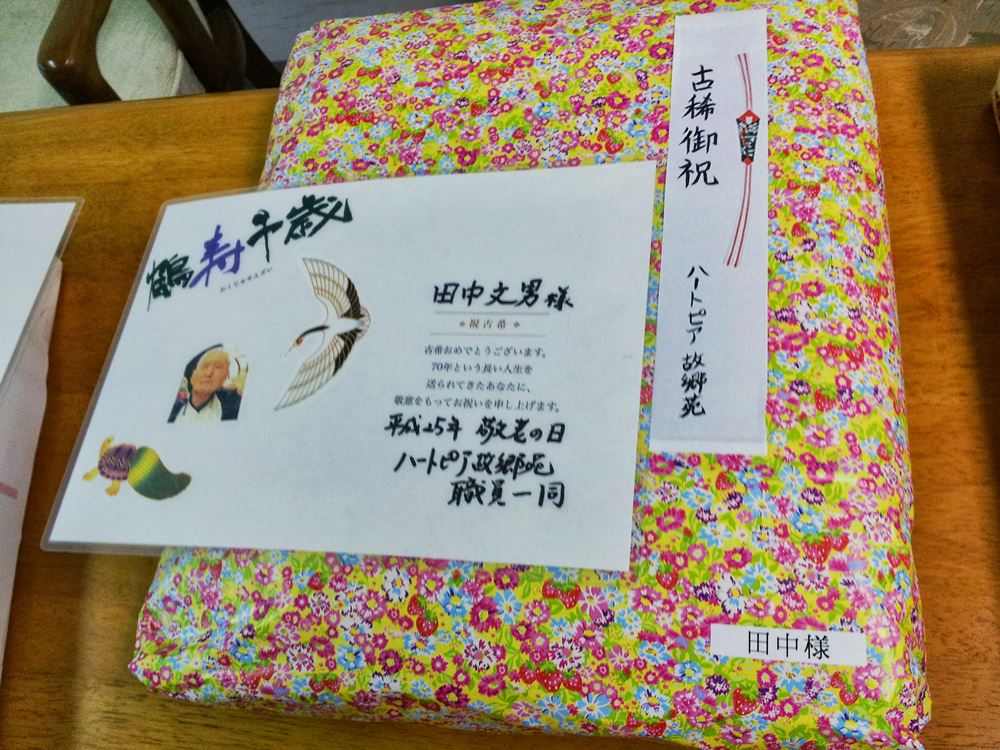 鶴寿千歳
かくじゅせんざい
田中文男様
祝古希
古希おめでとうございます。
70年という長い人生を
送られてきたあなたに、
敬意をもってお祝いを申し上げます。
平成25年 敬老の日
ハートピア故郷苑
職員一同
古稀御祝
ハートピア 故郷苑
田中様